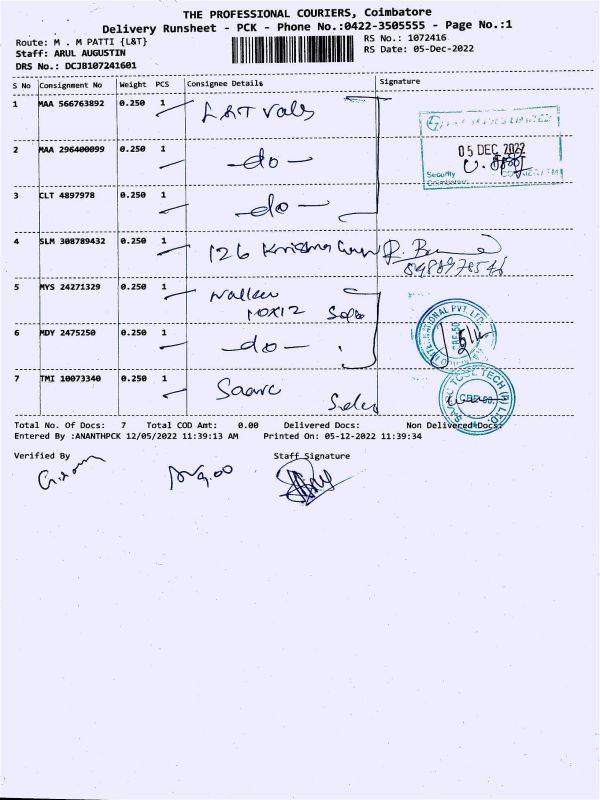 THE PROFESSIONAL COURIERS, Coimbatore
Delivery Runsheet - PCK - Phone No.:0422-3505555 - Page No.:1
Route: M . M PATTI {L&T} RS No.: 1072416
Staff: ARUL AUGUSTIN RS Date: 05-Dec-2022
DRS No.: DCJB107241601
S No Consignment No Weight PCS Consignee Details Signature
1 MAA 566763892 0.250 1 L&T Valves
05 DEC 2022
2 MAA 296400099 0.250 1 -do-
Security
3 CLT 4897978 0.250 1 -do-
4 SLM 308789432 0.250 1 126 Krishna
5 MYS 24271329 0.250 1
6 MDY 2475250 0.250 1 -do-
7 TMI 10073340 0.250 1 Saarc
CBE-50.
Total No. Of Docs: 7 Total COD Amt: 0.00 Delivered Docs: Non Delivered Docs:
Entered By :ANANTHPCK 12/05/2022 11:39:13 AM Printed On: 05-12-2022 11:39:34
Verified By Staff Signature